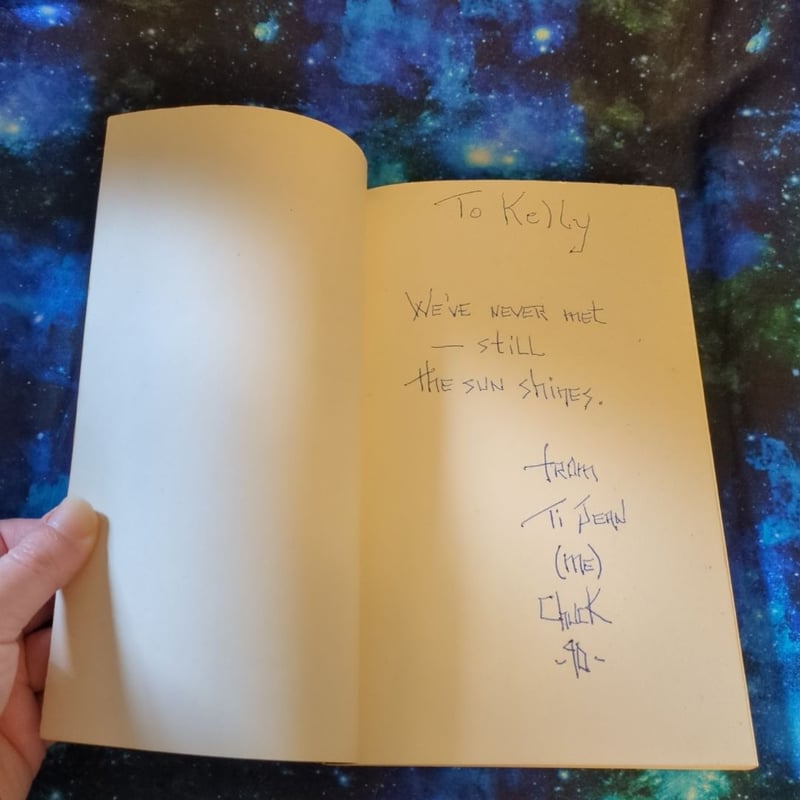 To Kelly
We've never met
— still
the sun shines.
from
Ti Jean
(me)
Chuck
-90-